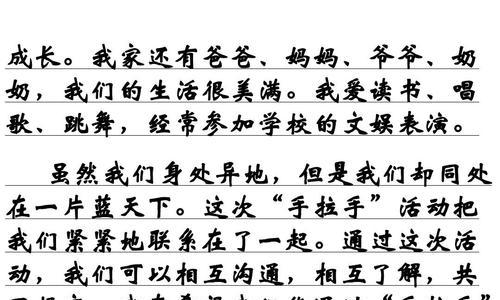 成长。我家还有爸爸、妈妈、爷爷、奶
奶，我们的生活很美满。我爱读书、唱
歌、跳舞，经常参加学校的文娱表演。
虽然我们身处异地，但是我们却同处
在一片蓝天下。这次“手拉手”活动把
我们紧紧地联系在了一起。通过这次活
动，我们可以相互沟通，相互了解，共
“手拉手”